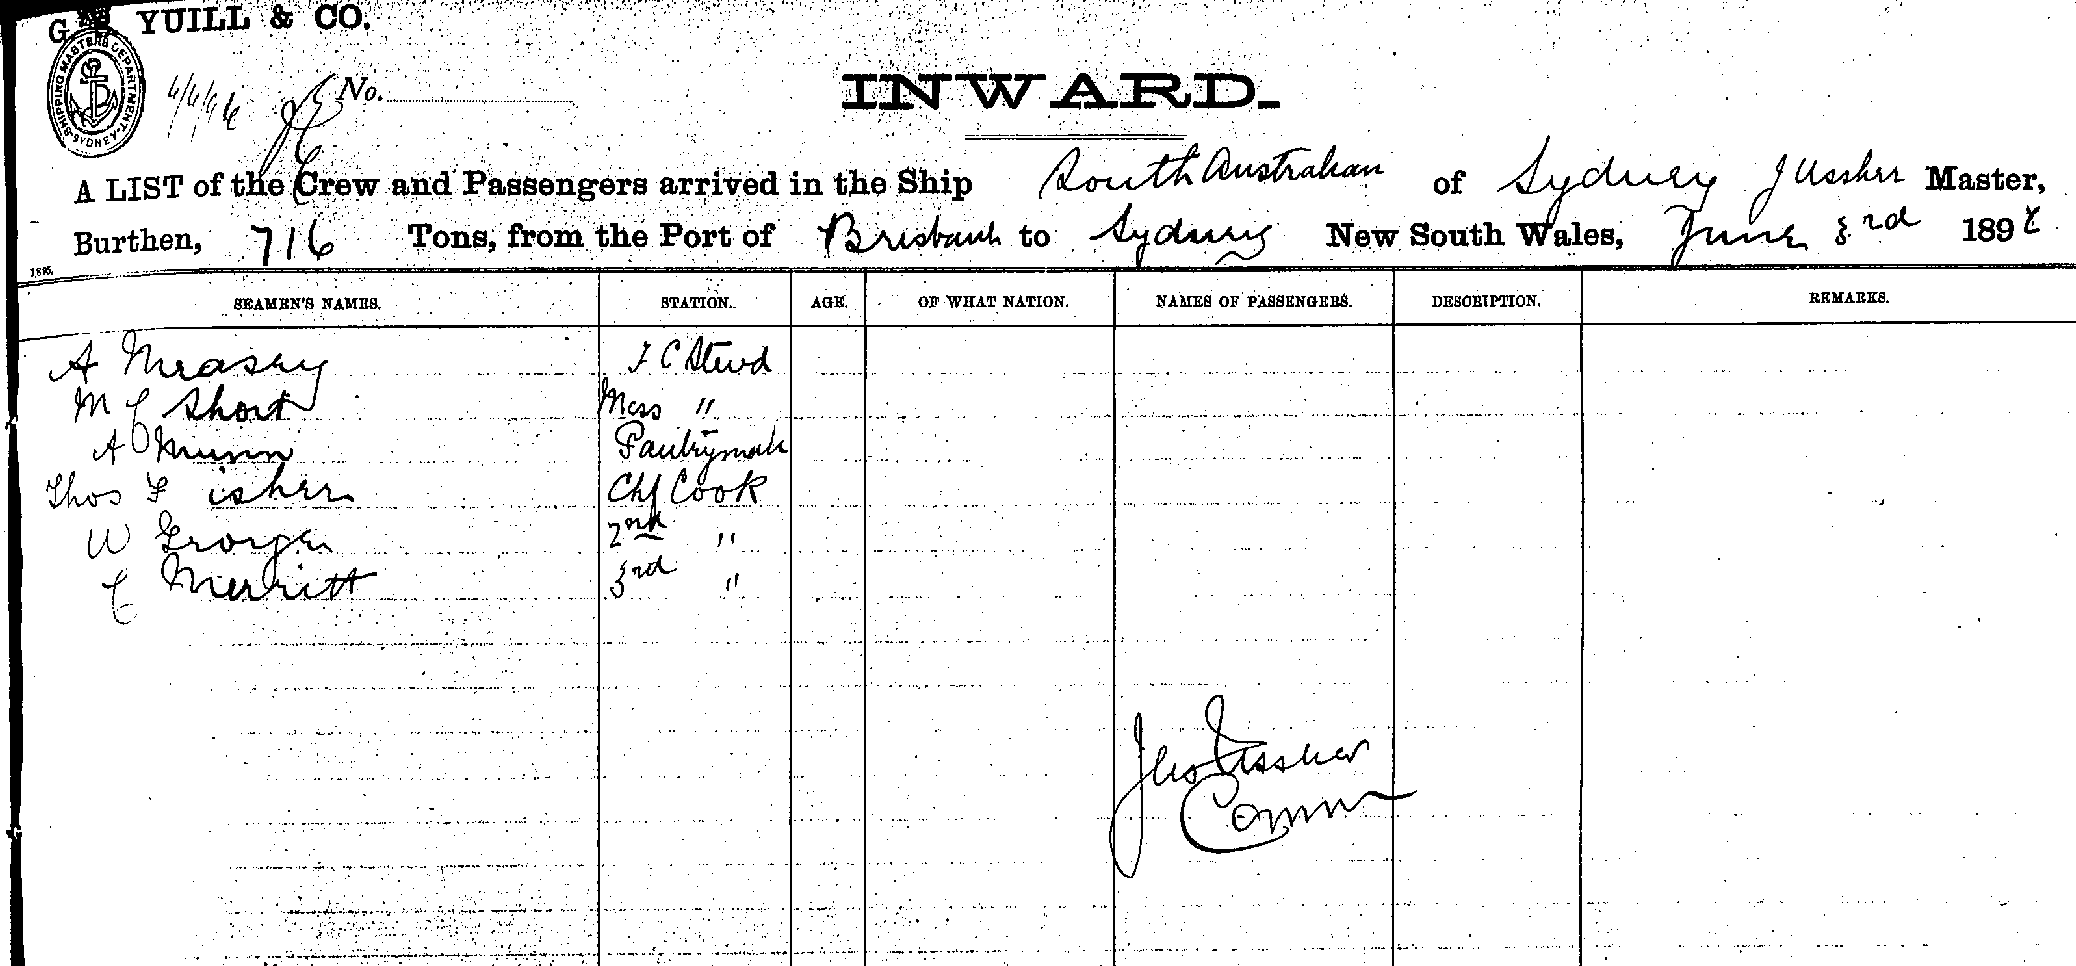 G. YUILL & CO.
SHIPPING MASTERS DEPARTMENT SYDNEY
4/6/96 No.
INWARD.
A LIST of the Crew and Passengers arrived in the Ship South Australian of Sydney J Ussher Master,
Burthen, 716 Tons, from the Port of Brisbane to Sydney New South Wales, June 3rd 189
SEAMEN'S NAMES. STATION. AGE. OF WHAT NATION. NAMES OF PASSENGERS. DESCRIPTION. REMARKS.
A Measey F C Stewd
M C Short Mess "
A Munn Pantryman
Thos Fisher Chf Cook
W George 2nd "
C Merritt 3rd "
Jno Ussher
Comm